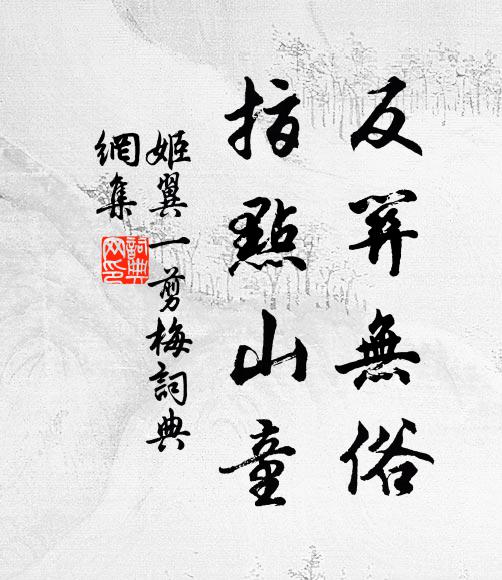 反無俗
指點山童
姬翼一剪梅詞典
網集
詞典
网印